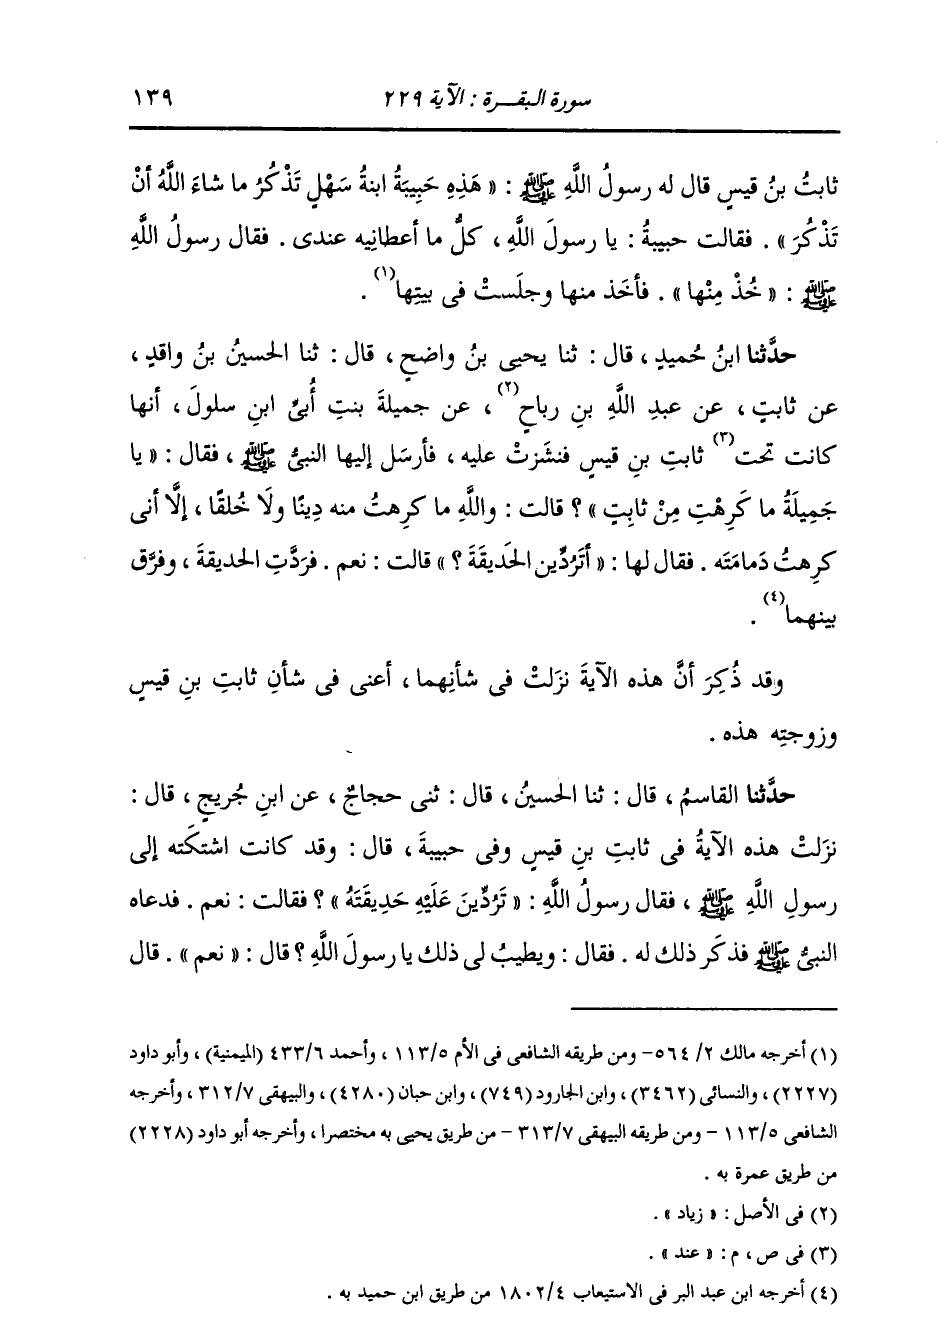 سورة البقرة : الآية ٢٢٩ ١٣٩
ثابتُ بنُ قيسٍ قال له رسولُ اللَّهِ ﷺ : « هَذِهِ حَبِيبَةُ ابنةُ سَهْلٍ تَذْكُرُ ما شاءَ اللَّهُ أنْ
تَذْكُرَ » . فقالت حبيبةُ : يا رسولَ اللَّهِ ، كلُّ ما أعطانِيه عندى . فقال رسولُ اللَّهِ
ﷺ : « خُذْ مِنْها » . فأخَذ منها وجلَستْ فى بيتِها(١) .
حدَّثنا ابنُ حُميدٍ ، قال : ثنا يحيى بنُ واضحٍ ، قال : ثنا الحسينُ بنُ واقدٍ ،
عن ثابتٍ ، عن عبدِ اللَّهِ بنِ رباحٍ(٢) ، عن جميلةَ بنتِ أُبىِّ ابنِ سلولَ ، أنها
كانت تحت(٣) ثابتِ بنِ قيسٍ فنشَزتْ عليه ، فأرسَل إليها النبىُّ ﷺ ، فقال : « يا
جَمِيلَةُ ما كَرِهْتِ مِنْ ثابِتٍ » ؟ قالت : واللَّهِ ما كرِهتُ منه دِينًا ولَا خُلقًا ، إلَّا أنى
كرِهتُ دَمامَتَه . فقال لها : « أتَرُدِّين الحَدِيقَةَ ؟ » قالت : نعم . فردَّتِ الحديقةَ ، وفرَّق
بينهما(٤) .
وقد ذُكِرَ أنَّ هذه الآيةَ نزَلتْ فى شأنِهما ، أعنى فى شأنِ ثابتِ بنِ قيسٍ
وزوجتِه هذه .
حدَّثنا القاسمُ ، قال : ثنا الحسينُ ، قال : ثنى حجاجٌ ، عن ابنِ جُريجٍ ، قال :
نزَلتْ هذه الآيةُ فى ثابتِ بنِ قيسٍ وفى حبيبةَ ، قال : وقد كانت اشتكَته إلى
رسولِ اللَّهِ ﷺ ، فقال رسولُ اللَّهِ : « تَرُدِّينَ عَلَيْهِ حَدِيقَتَهُ » ؟ فقالت : نعم . فدعاه
النبىُّ ﷺ فذكَر ذلك له . فقال : ويطيبُ لى ذلك يا رسولَ اللَّهِ ؟ قال : « نعم » . قال
(١) أخرجه مالك ٢/ ٥٦٤- ومن طريقه الشافعى فى الأم ١١٣/٥ ، وأحمد ٤٣٣/٦ (الميمنية) ، وأبو داود
(٢٢٢٧) ، والنسائى (٣٤٦٢) ، وابن الجارود (٧٤٩) ، وابن حبان (٤٢٨٠) ، والبيهقى ٣١٢/٧ ، وأخرجه
الشافعى ١١٣/٥ - ومن طريقه البيهقى ٣١٣/٧ - من طريق يحيى به مختصرا ، وأخرجه أبو داود (٢٢٢٨)
من طريق عمرة به .
(٢) فى الأصل : « زياد » .
(٣) فى ص ، م : « عند » .
(٤) أخرجه ابن عبد البر فى الاستيعاب ١٨٠٢/٤ من طريق ابن حميد به .